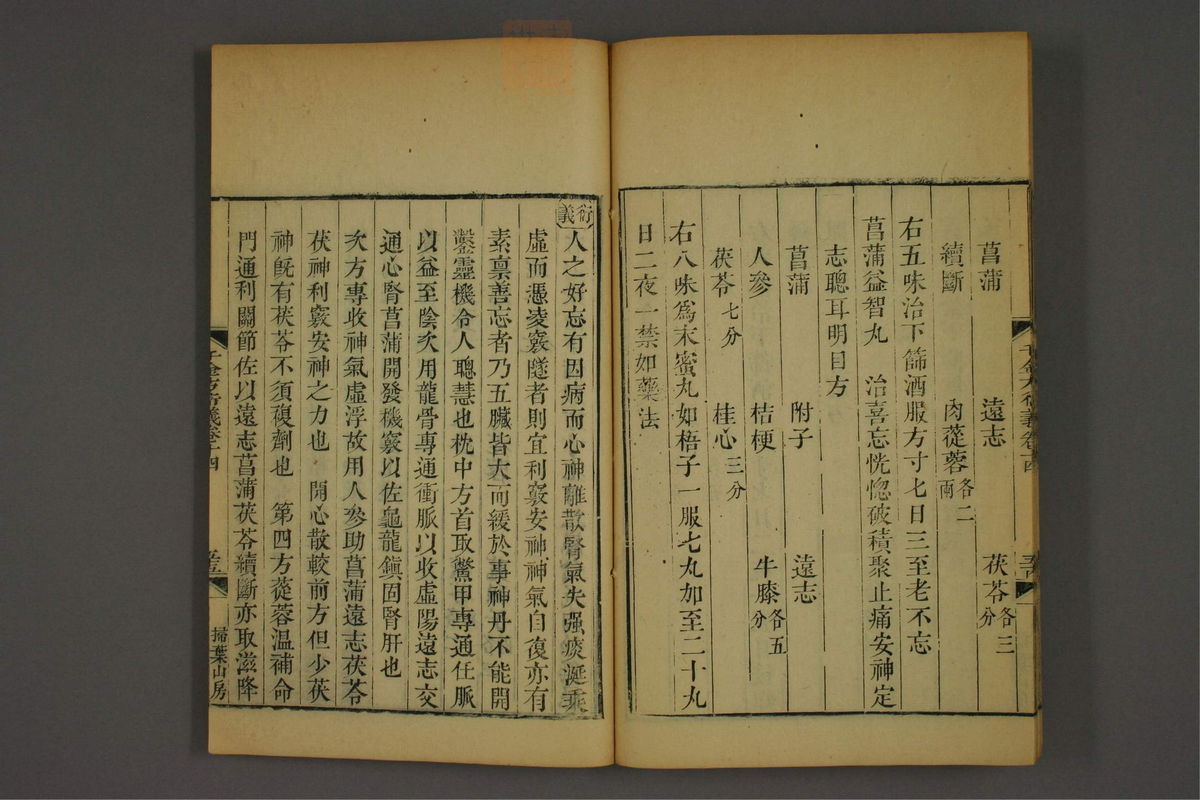 菖蒲　遠志　茯苓各三分
續斷　肉蓯蓉各二兩
右五味治下篩酒服方寸七日三至老不忘
菖蒲益智丸　治喜忘恍惚破積聚止痛安神定
志聰耳明目方
菖蒲　附子　遠志
人參　桔梗　牛膝各五分
茯苓七分　桂心三分
右八味爲末蜜丸如梧子一服七丸如至二十丸
日二夜一禁如藥法
衍義　人之好忘有因病而心神離散腎氣失强痰涎乘
虛而憑凌竅隧者則宜利竅安神神氣自復亦有
素稟善忘者乃五臟皆大而緩於事神丹不能開
鑿靈機令人聰慧也枕中方首取鱉甲專通任脈
以益至陰次用龍骨專通衝脈以收虛陽遠志交
通心腎菖蒲開發機竅以佐龜龍鎭固腎肝也
次方專收神氣虛浮故用人參助菖蒲遠志茯苓
茯神利竅安神之力也　開心散較前方但少茯
神旣有茯苓不須複劑也　第四方蓯蓉溫補命
門通利關節佐以遠志菖蒲茯苓續斷亦取滋降
千金方衍義卷十四
掃葉山房